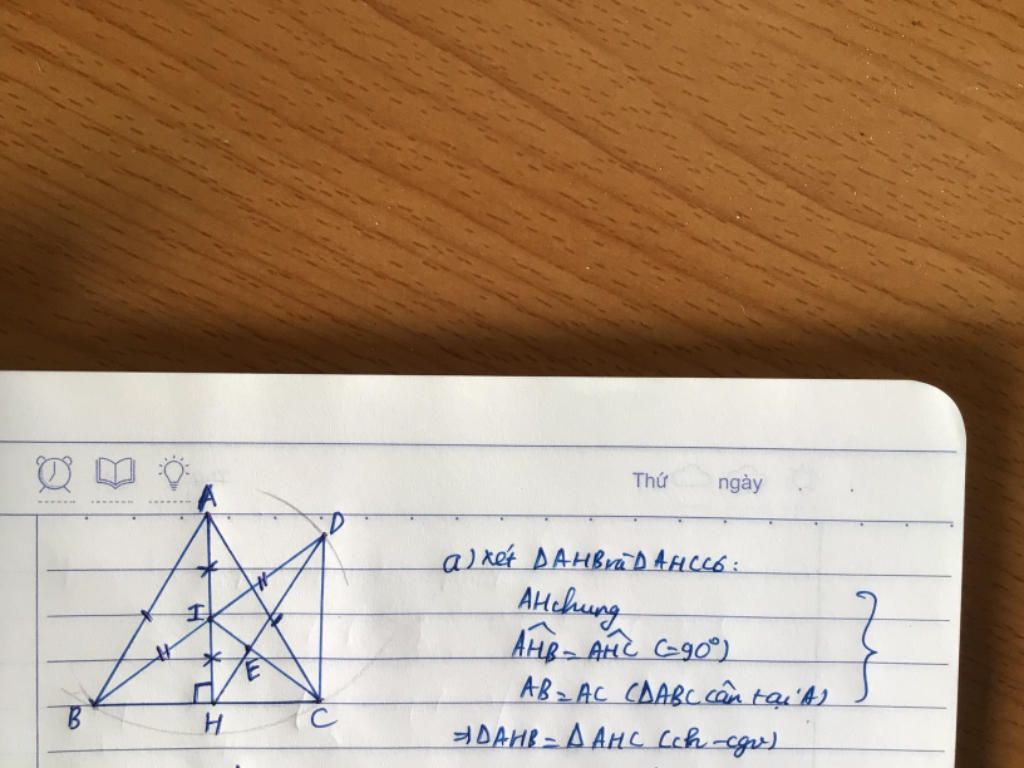 Thứ ngày
A
D
I
E
B
H
C
a) Xét ΔAHB và ΔAHC có:
AH chung
AHB = AHC (=90°)
AB = AC (ΔABC cân tại A)
⇒ ΔAHB = ΔAHC (ch - cgv)